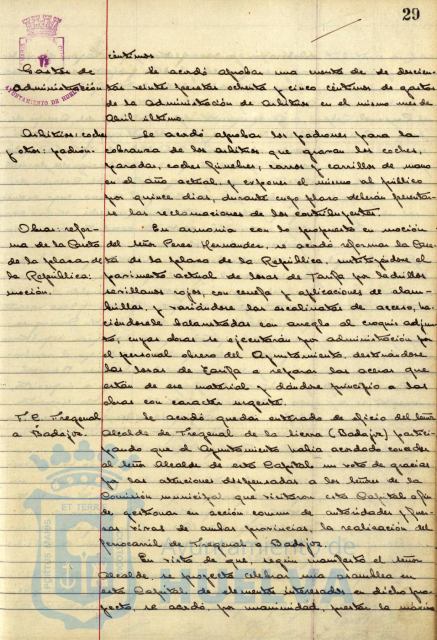 29
céntimos
Gastos de
Administración
Se acordó aprobar una cuenta de doscien-
tas veinte pesetas ochenta y cinco céntimos de gastos
de la Administración de Arbitrios en el mismo mes de
Abril último.
Arbitrios: coches
y otros: padrón.
Se acordó aprobar los padrones para la
cobranza de los arbitrios que gravan los coches,
paradas, coches fúnebres, carros y carrillos de mano
en el año actual, y exponer el mismo al público
por quince dias, durante cuyo plazo deberán presentar-
se las reclamaciones de los contribuyentes.
Obras: refor-
ma de la Cuesta
de la plaza de
la República:
moción.
En armonia con lo propuesto en moción
del Señor Perez Hernandez, se acordó reformar la Cues-
ta de la plaza de la República, sustituyéndose el
pavimento actual de losas de Tarifa por ladrillos
sevillanos rojos, con cenefa y aplicaciones de alam-
brillas, y variándose las escalinatas de acceso, ha-
ciéndosele balaustradas con arreglo al croquis adjun-
to, cuyas obras se ejecutarán por administración por
el personal obrero del Ayuntamiento, destinándose
las losas de Tarifa a reparar las aceras que
están de ese material y dándose principio a las
obras con carácter urgente.
F. C. Fregenal
a Badajoz.
Se acordó quedar enterado de oficio del Señor
Alcalde de Fregenal de la Sierra (Badajoz) partici-
pando que el Ayuntamiento habia acordado conceder
al Señor Alcalde de esta Capital un voto de gracias
por las atenciones dispensadas a los Señores de la
Comisión municipal que visitaron esta Capital a fin
de gestionar en acción comun de autoridades y fuer-
zas vivas de ambas provincias, la realización del
ferrocarril de Fregenal a Badajoz.
En vista de que, según manifestó el Señor
Alcalde, se proyecta celebrar una asamblea en
esta Capital, de elementos interesados en dicho pro-
yecto, se acordó, por unanimidad, prestar la máxima